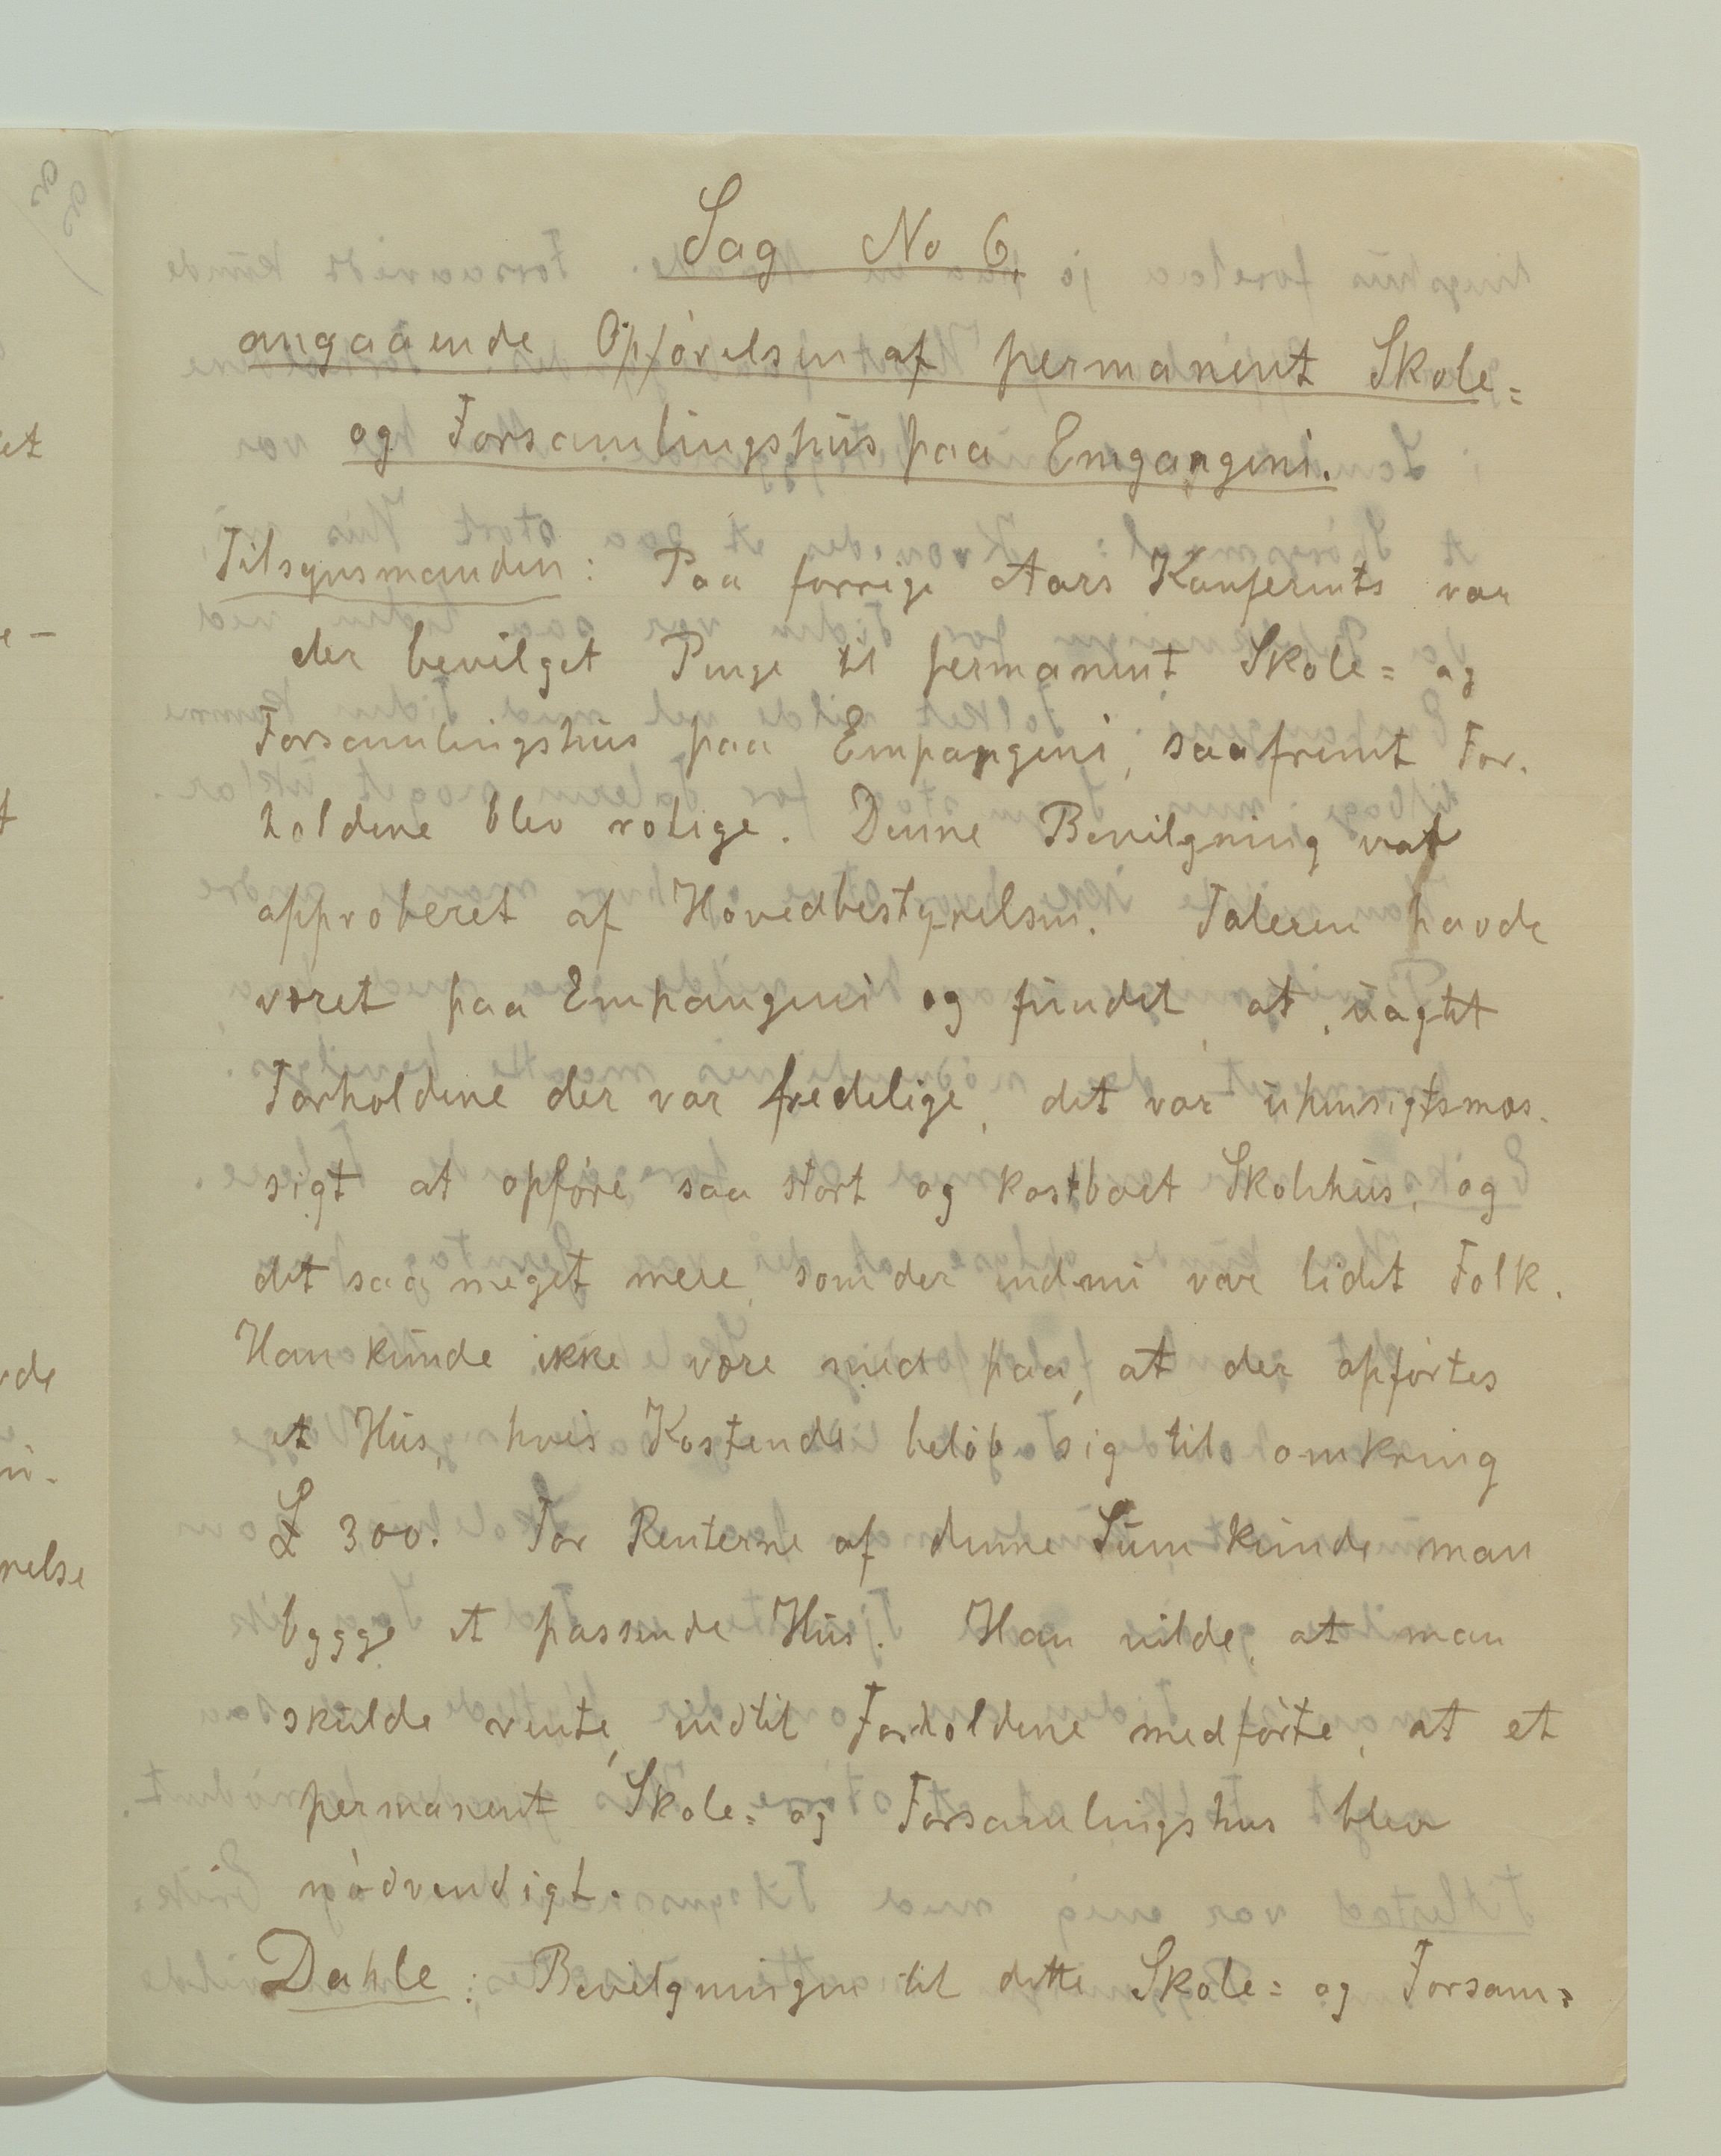 Sag No 6,
angaaende Opförelsen af permanent Skole=
og Forsamlingshus paa Emgangeni.
Tilsynsmanden: Paa forrige Aars Konferents var
der bevilget Penge til permanent Skole= og
Forsamlingshus paa Empangeni, saafremt For-
holdene blev rolige. Denne Bevilgning var
approberet af Hovedbestyrelsen. Taleren havde
været paa Empangeni og fundet, at, uagtet
Forholdene der var fredelige, det var uhensigtsmæs-
sigt at opføre saa stort og kostbart Skolehus, og
det saa meget mere, som der endnu var lidet Folk.
Han kunde ikke være med paa, at der opførtes
et Hus, hvis Kostende beløb sig til omkring
£ 300. For Renterne af denne Sum kunde man
bygge et passende Hus. Han vilde, at man
skulde vente, indtil Forholdene medførte, at et
permanent Skole= og Forsamlingshus blev
nödvendigt.
Dahle: Bevilgningen til dette Skole= og Forsam=
et
e -
t
de
n-
relse